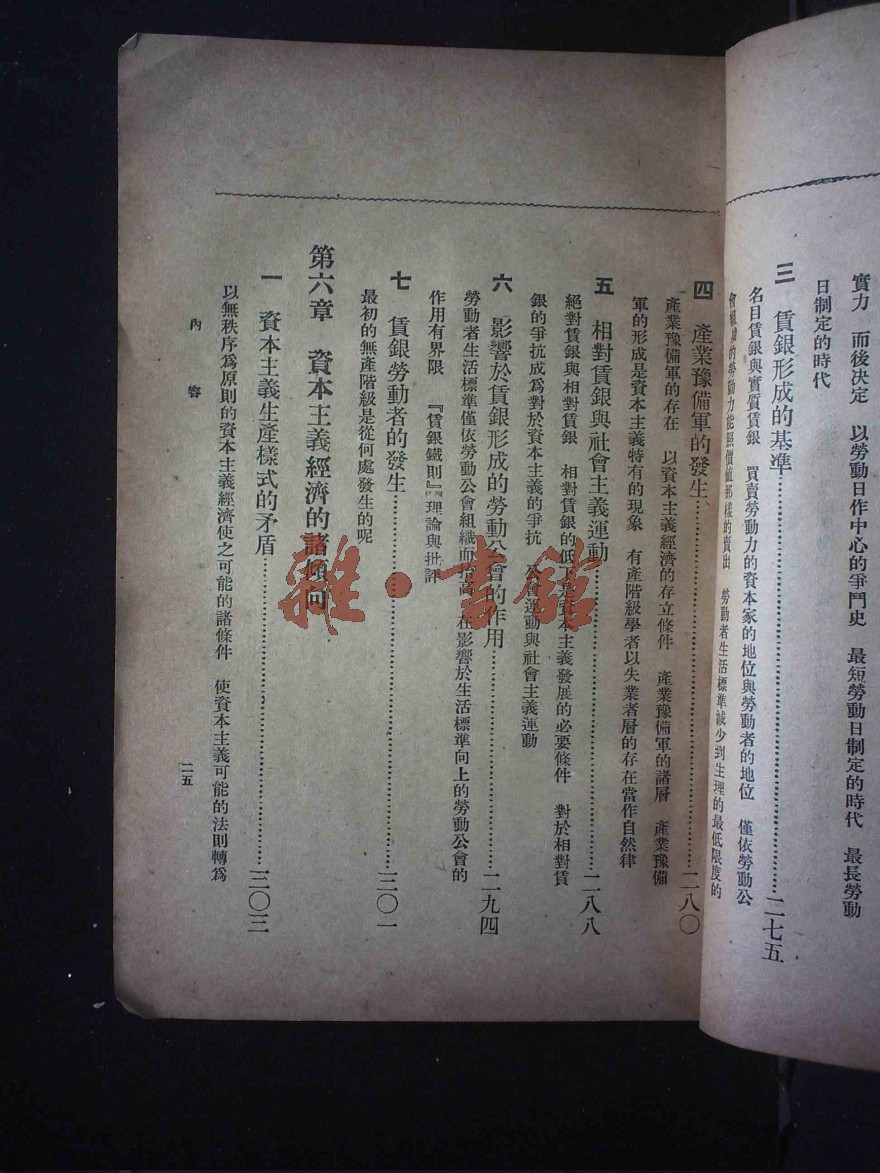 實力　而後決定　以勞動日作中心的爭鬥史　最短勞動日制定的時代　最長勞動
日制定的時代
三　賃銀形成的基準……二七五
名目賃銀與實質賃銀　買賣勞動力的資本家的地位與勞動者的地位　僅依勞動公
會組織的勞動力能照價值那樣的賣出　勞動者生活標準減少到生理的最低限度的
四　產業豫備軍的發生……二八〇
產業豫備軍的存在　以資本主義經濟的存立條件　產業豫備軍的諸層　產業豫備
軍的形成是資本主義特有的現象　有產階級學者以失業者層的存在當作自然律
五　相對賃銀與社會主義運動……二八八
絕對賃銀與相對賃銀　相對賃銀的低下是資本主義發展的必要條件　對於相對賃
銀的爭抗成為對於資本主義的爭抗　運動與社會主義運動
六　影響於賃銀形成的勞動公會的作用……二九四
勞動者生活標準僅依勞動公會組織而抬高　在影響於生活標準向上的勞動公會的
作用有界限　『賃銀鐵則』理論與批評
七　賃銀勞動者的發生……三〇一
最初的無產階級是從何處發生的呢
第六章　資本主義經濟的諸傾向
一　資本主義生產樣式的矛盾……三〇三
以無秩序為原則的資本主義經濟使之可能的諸條件　使資本主義可能的法則轉為
內容
二五
雜·書館